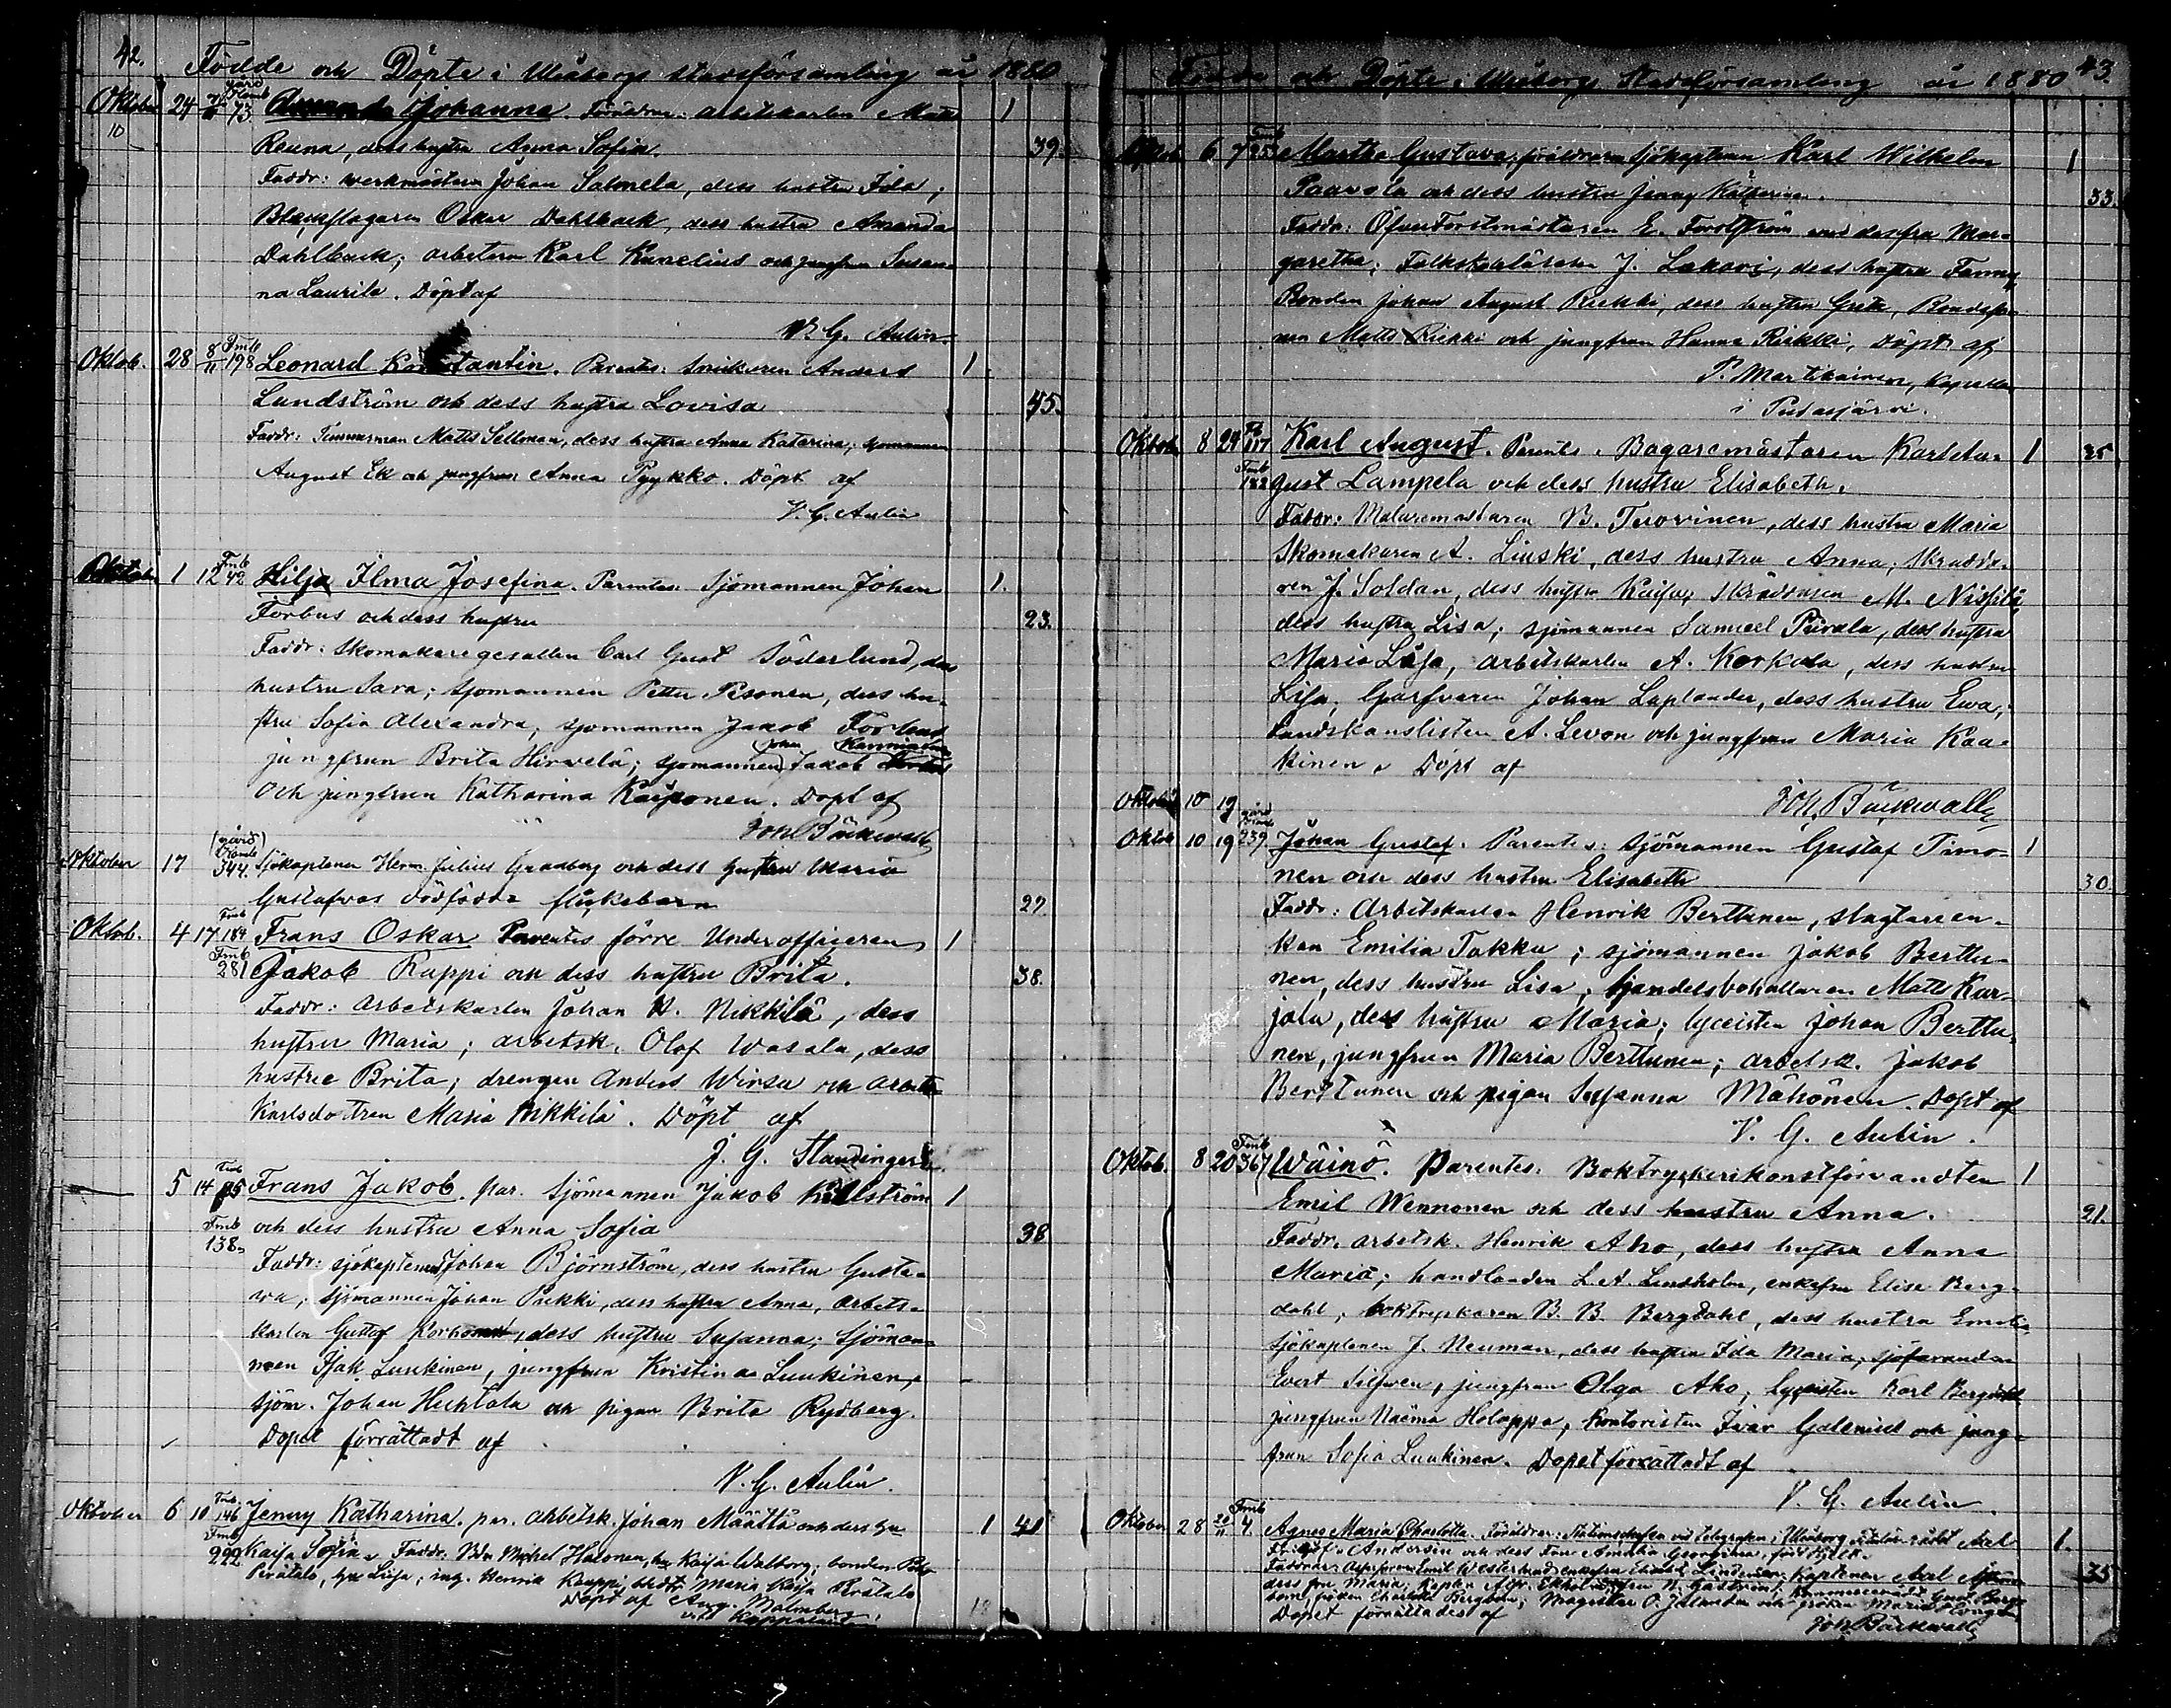 42.
Födde och Döpte i Uleåborgs stadsförsamling år 1880
Oktober 24 gård Kamb 73. Johanna. Föräldrar: arbetskarlen Matts 1
10
Reuna, dess hustru Anna Sofia. 39.
Faddr: werkmästaren Johan Salmela, dess hustru Ida;
Oskar Dahlback, dess hustru Amanda
Dahlback; arbetaren Karl Kanelius och jungfrun Susan-
na Laurila. Döpt af
V. G. Aulin.
Oktob. 28 8/11 Fmb 198 Leonard Konstantin. Parentes: Snickaren Anders 1
Lundström och dess hustru Lovisa 45.
Faddr: Timmerman Matts Sellman, dess hustru Anna Katarina; sjömannen
August Ek och jungfrun Anna Pyykkö. Döpt af
V. G. Aulin
Oktober 1 12 Fmb 42 Hilja Ilma Josefina. Parentes: Sjömannen Johan 1.
Forbus och dess hustru 23.
Faddr: Skomakaregesällen Carl Gust Söderlund, dess
hustru Sara; sjömannen Petter Pesonen, dess hu-
stru Sofia Alexandra, sjömannen Jakob Forbus
jungfrun Brita Hirvelä; sjömannen Jakob
och jungfrun Katharina Karponen. Döpt af
Joh. Bäckwall
Oktober 17 (gård) Kamb 344. Sjökaptenen Herm. Julius Granberg och dess hustru Maria
Gustafvas dödfödda flickebarn 27.
Oktob. 4 17 Fmb 189 Frans Oskar Parentes förre Underofficeren 1
Fmb 281 Jakob Kuppi och dess hustru Brita. 38.
Faddr: arbetskarlen Johan H. Nikkilä, dess
hustru Maria; arbetsk. Olof Wasala, dess
hustru Brita; drengen Anders Wirsu och arbets-
karlsdottren Maria Nikkilä. Döpt af
J. G. Standinger
5 14 Fmb Frans Jakob. par. Sjömannen Jakob Källström 1
Fmb 138. och dess hustru Anna Sofia 38
Faddr: sjökaptenen Johan Björnström, dess hustru Gusta-
va; sjömannen Johan Pukki, dess hustru Anna, arbets-
karlen Gustaf Korhonen, dess hustru Susanna; Sjöman-
nen Isak Luukinen, jungfrun Kristina Luukinen,
sjöm. Johan Huhtala och pigan Brita Rydberg.
Dopet förrättadt af
V. G. Aulin.
Oktober 6 10 Fmb. 146 Jenny Katharina. par. arbetsk. Johan Määttä och dess hu 1 41
Fmb 292 Kaisa Sofia. Faddr: Bdn Michel Halonen, hu Kaisa Walborg; bonden Petter
Perätalo, hu Lisa; ing. Henrik Kauppi, bdotr Maria Kaisa Perätalo
Döpt af Aug. Malmberg,
vice Kappelan

43.
Födde och Döpte i Uleåborgs Stadsförsamling år 1880
Oktob 6 7 Fmb 253 Martha Gustava, föräldrarna Sjökaptenen Karl Wilhelm 1
Paavola och dess hustru Jenny Katharina. 33.
Faddr: Öfverforstmästaren E. Forsström med dess fru Mar-
garetha; Folkskoleläraren J. Lakari, dess hustru Fanny
Bonden Johan August Riekki, dess hustru Greta, Bondeso-
nen Matts Riekki och jungfrun Hanna Riekki. Döpt af
P. Martikainen, Kapellan
i Pudasjärvi.
Oktober 8 24 Fb 117 Karl August. Parentes: Bagaremästaren Karl Au- 1 25
Fmb 182 gust Lampela och dess hustru Elisabeth.
Faddr: Målaremästaren B. Terovinen, dess hustru Maria
Skomakaren A. Liuski, dess hustru Anna; Skrädda-
ren J. Soldan, dess hustru Kaisa, Skräddaren M. Niskilä
dess hustru Lisa; sjömannen Samuel Pursela, dess hustru
Maria Lisa, arbetskarlen A. Korkala, dess hustru
Lisa, Garfvaren Johan Laplander, dess hustru Ewa;
Landskanslisten A. Levon och jungfrun Maria Kaa-
kinen. Döpt af
Oktober 10 19 Joh. Bäckwall
Oktob 10 19 gård Kamb 239. Johan Gustaf. Parentes: Sjömannen Gustaf Timo- 1
nen och dess hustru Elisabeth 30.
Faddr: Arbetskarlen Henrik Berttunen, slagtareen-
kan Emilia Takku; sjömannen Jakob Berttu-
nen, dess hustru Lisa, handelsbokhållaren Matts Kar-
jalu, dess hustru Maria; lyceisten Johan Berttu-
nen, jungfrun Maria Berttunen; arbetsk. Jakob
Berttunen och pigan Susanna Mähönen. Döpt af
V. G. Aulin.
Oktob. 8 20 Fmb 367 Wäinö. Parentes: Boktryckerikonstförvandten 1
Emil Wennonen och dess hustru Anna. 21.
Faddr. arbetsk. Henrik Aho, dess hustru Anna
Maria; handlanden L. A. Lindholm, enkefru Elise Berg-
dahl, boktryckaren B. B. Bergdahl, dess hustru Emelie
Sjökaptenen J. Neuman, dess hustru Ida Maria, sjöfaranden
Evert Silfven, jungfrun Olga Aho, lyceisten Karl Bergdahl
jungfrun Naëma Holappa, Kontoristen Ivar Galenius och jung-
frun Sofia Luukinen. Dopet förrättadt af
V. G. Aulin.
Oktober 28 20/11 Fmb 4. Agnes Maria Charlotta. Föräldrar: Stationschefen vid telegrafen i Uleåborg Titulärrådet Axel 1.
Fridolf Andersin och dess Fru Amalia Georgina, född
Emil Westerlund, enkefru Lindeman, Kaptenen Axel 35
dess fru Maria; Kapten Alfr. Ekholm, fru N. Gaström, Kommerserådet Gust. Berg-
bom, fröken Charlotta Bergbom; Magister O. Jalander och fröken Maria
Dopet förrättades af
Joh Bäckwall